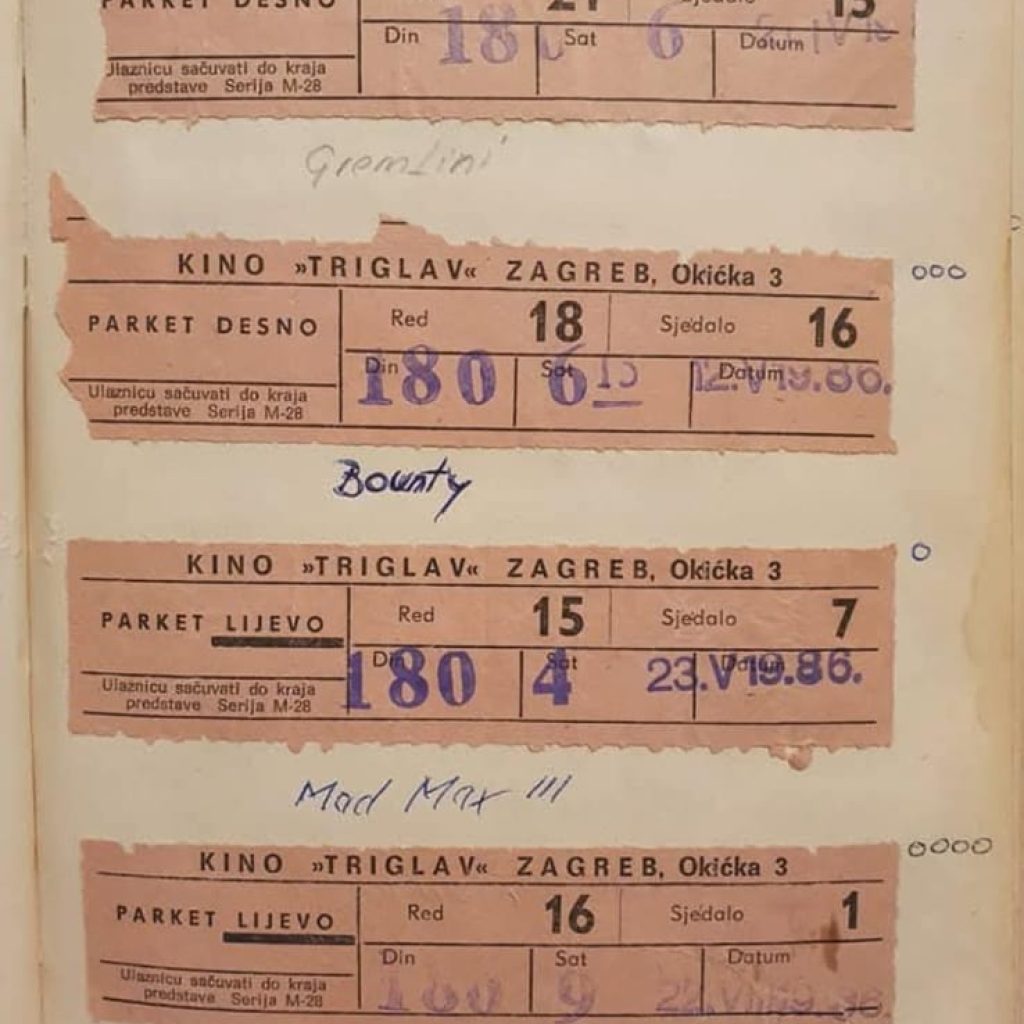 PARKET DESNO 21 Sjedalo 15
Din 180 Sat 6 Datum
Ulaznicu sačuvati do kraja
predstave Serija M-28
Gremlini
KINO »TRIGLAV« ZAGREB, Okićka 3
PARKET DESNO Red 18 Sjedalo 16
Din 180 Sat 6 15 Datum 12.V 19.86.
Ulaznicu sačuvati do kraja
predstave Serija M-28
Bounty
KINO »TRIGLAV« ZAGREB, Okićka 3
PARKET LIJEVO Red 15 Sjedalo 7
Din 180 Sat 4 Datum 23.V 19.86.
Ulaznicu sačuvati do kraja
predstave Serija M-28
Mad Max III
KINO »TRIGLAV« ZAGREB, Okićka 3
PARKET LIJEVO Red 16 Sjedalo 1
Din Sat 9 Datum
Ulaznicu sačuvati do kraja
predstave Serija M-28